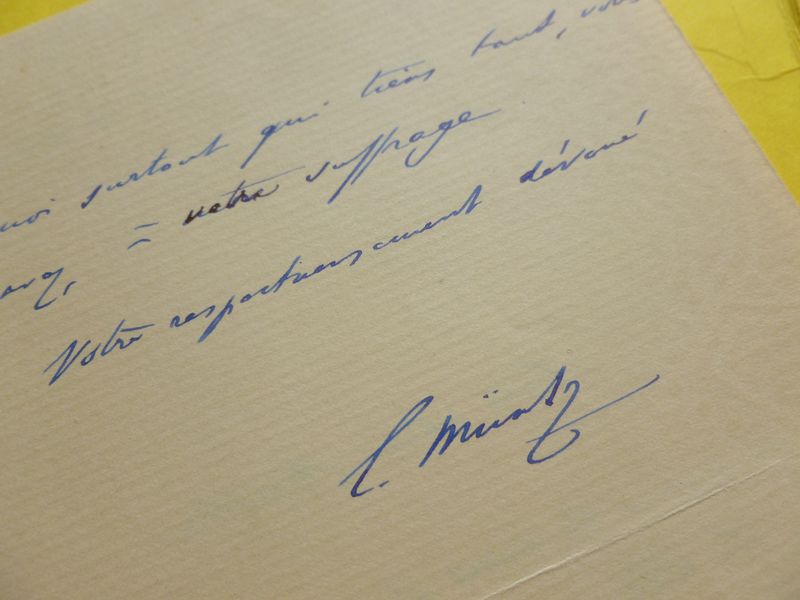 surtout qui tiens tant, vous
= votre suffrage
Votre respectueusement dévoué
E. Müntz